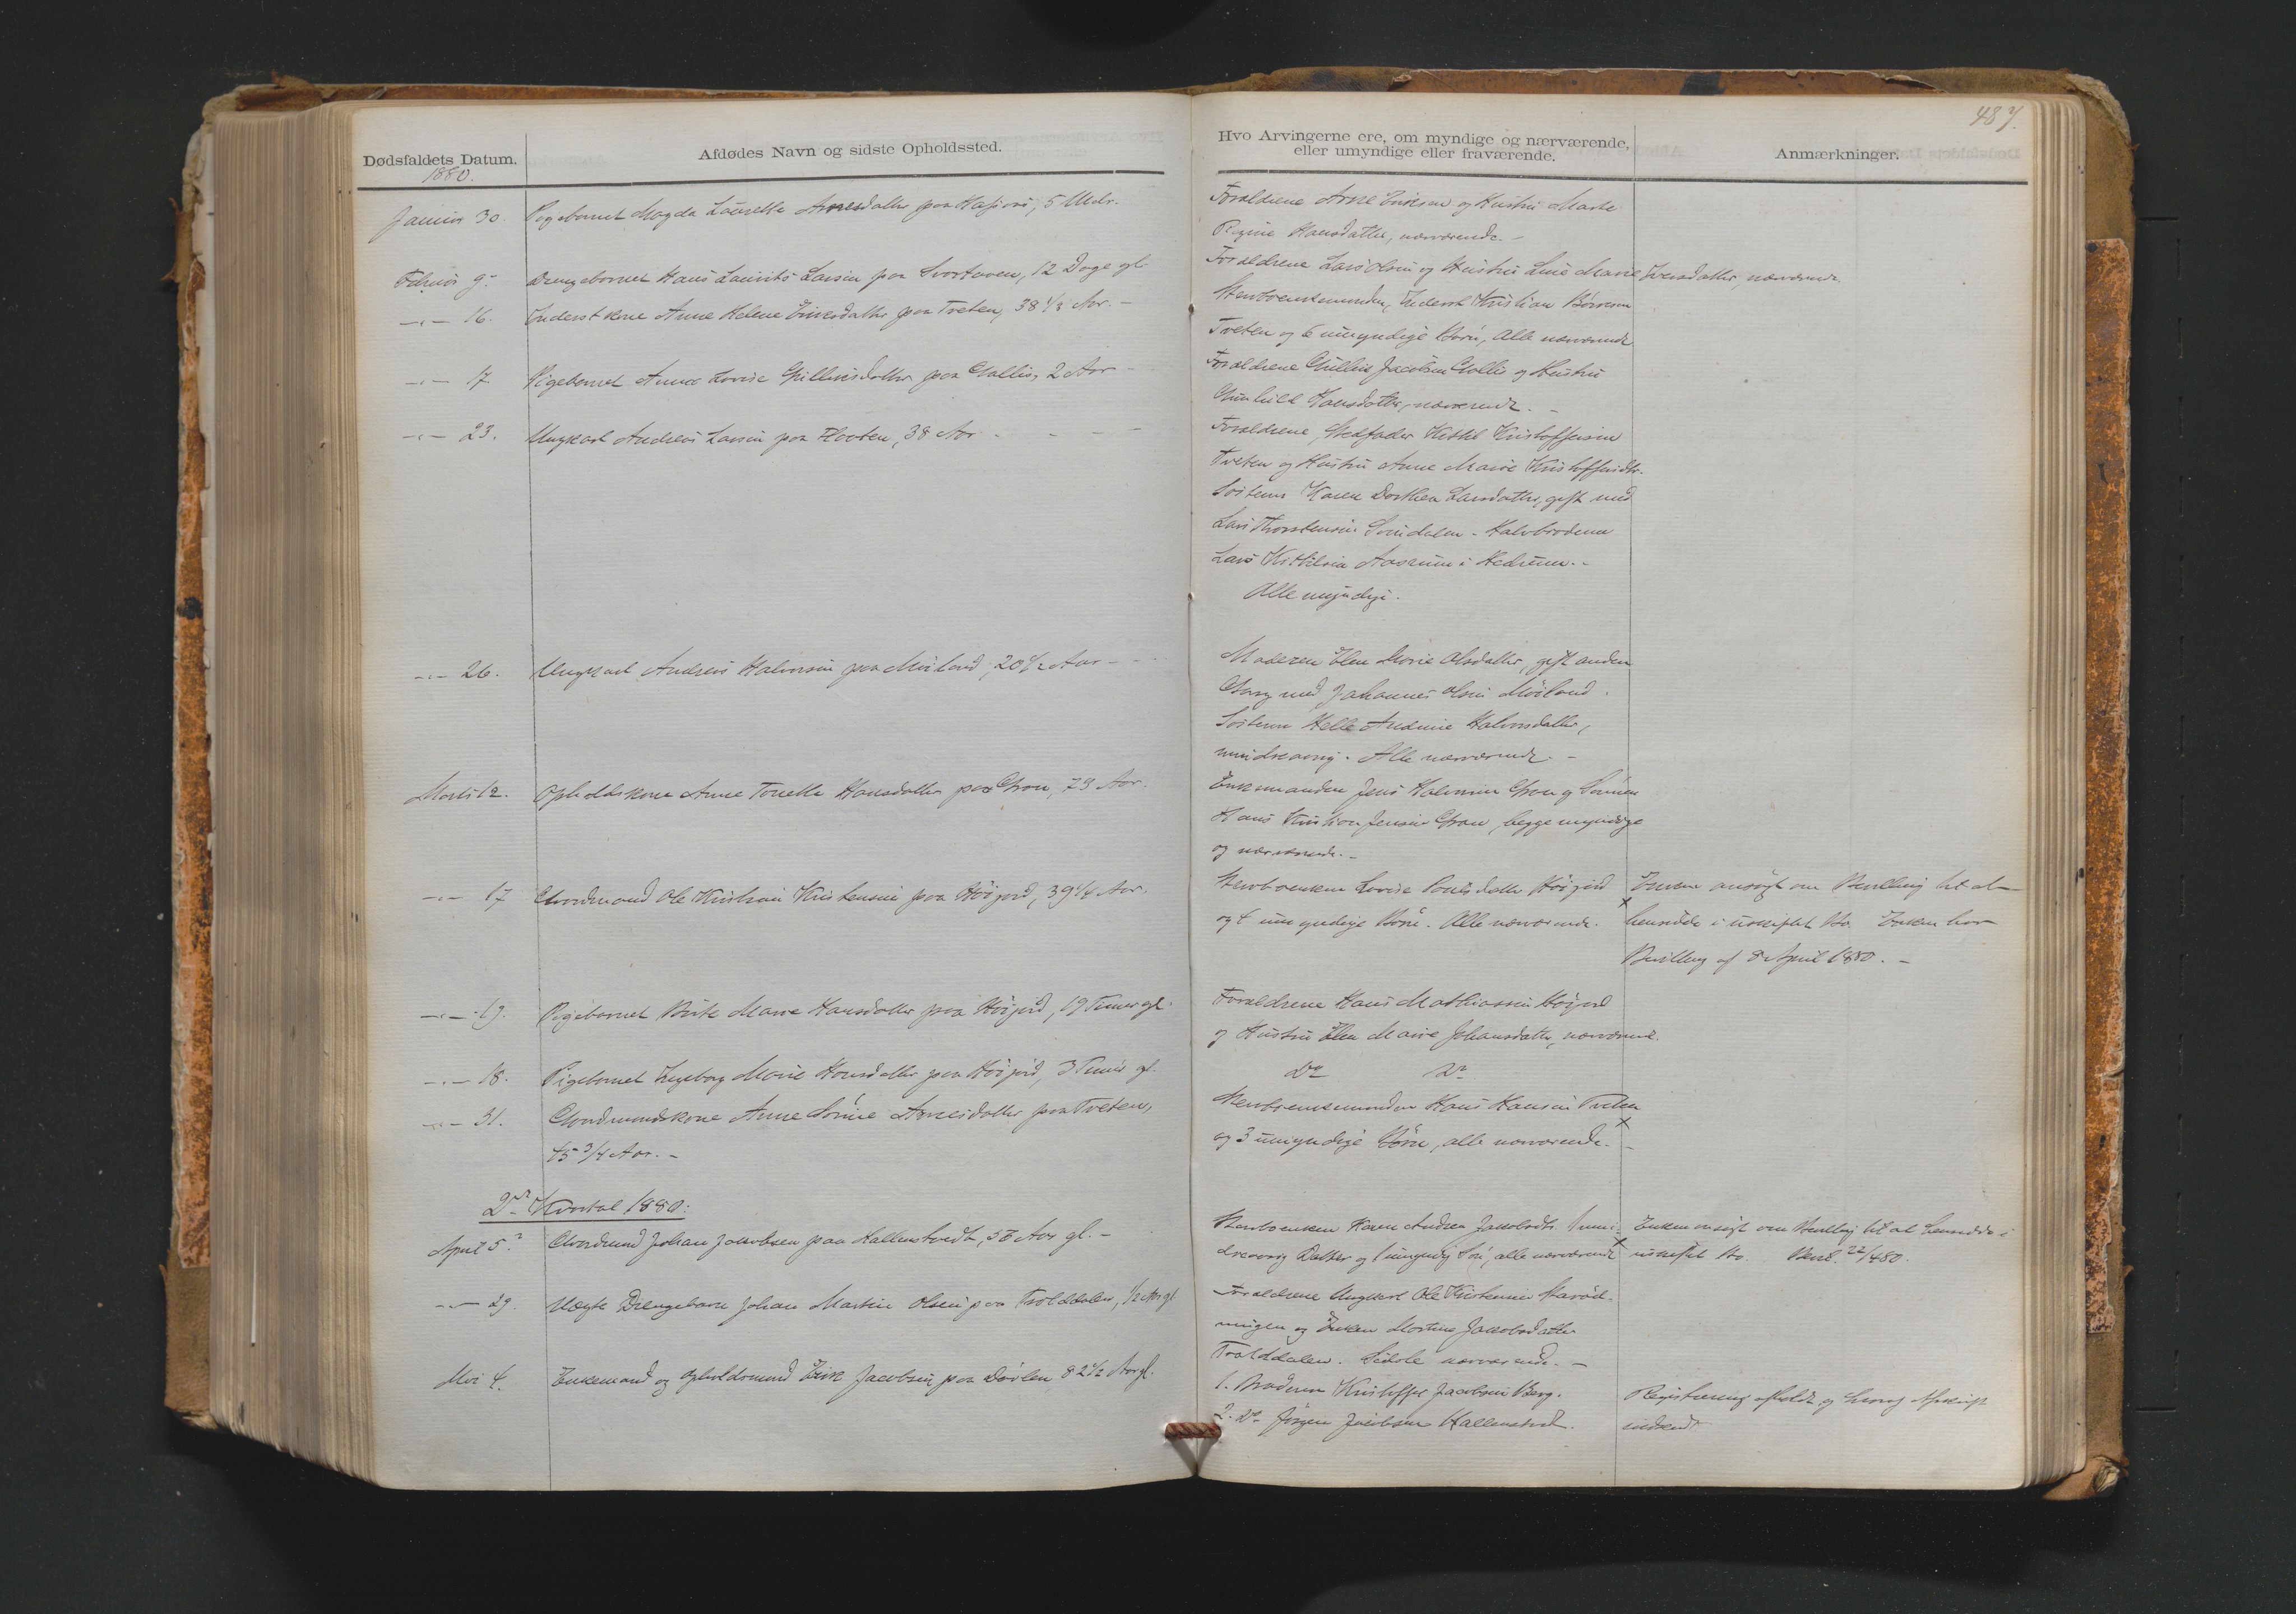 487.
Dødsfaldets Datum.
1880.
Afdødes Navn og sidste Opholdssted.
Hvo Arvingerne ere, om myndige og nærværende,
eller umyndige eller fraværende.
Anmærkninger.
Januar 30. Pigebarnet Magda Laurette Arnesdatter paa 5 Mdr.
Forældrene Arne Eriksen og Hustru Marte
Regine Hansdatter, nærværende. -
Februar 9. Drengebarnet Hans Laurits Larsen paa 12 Dage gl.
Forældrene Lars Olsen og Hustru Line Marie Iversdatter, nærværende.
-"- 16. Inderstkone Anne Helene Eriksdatter paa Tveten, 38 1/3 Aar. -
Inderst Kristian
Tveten og 6 umyndige Børn, Alle nærværende
-"- 17 Pigebarnet Anne Lovise Gulliksdatter paa Gallis, 2 Aar -
Forældrene Gullik Jacobsen Gallis og Hustru
Gunhild Hansdatter, nærværende. -
-"- 23. Ungkarl Andreas Larsen paa 38 Aar -
Forældrene, Stedfader Kittil Kristoffersen
Tveten og Hustru Anne Marie Kristoffersdtr.
Søsteren Karen Dorthea Larsdatter, gift med
Lars Thorstensen - Halvbroderen
Lars Kittilsen i Hedrum. -
Alle myndige.
-"- 26. Ungkarl Andreas Halvorsen paa Møiland, 20 1/2 Aar -
Moderen Elen Marie Olsdatter, gift anden
Gang med Johannes Olsen Møiland.
Søsteren Helle Andrine Halvorsdatter,
mindreaarig. Alle nærværende. -
Marts 12. Opholdskone Anne Tonette Hansdatter paa Gran, 73 Aar.
Enkemanden Jens Halvorsen Gran og Sønnen
Hans Kristian Jensen Gran, begge myndige
og nærværende. -
-"- 17 Gaardmand Ole Kristian Kristensen paa Høijord, 39 1/4 Aar.
Stervboenken Lovise Poulsdatter Høijord
og 4 umyndige Børn. Alle nærværende. x
Enken ansøgt om Bevilling til at
hensidde i uskiftet Bo. Enken har
Bevilling af 8 April 1880. -
-"- 19. Pigebarnet Berte Marie Hansdatter paa Høijord, 19 Timer gl.
Forældrene Hans Mathiassen Høijord
og Hustru Elen Marie Johansdatter, nærværende.
-"- 18. Pigebarnet Ingeborg Marie Hansdatter paa Høijord, 3 Timer gl.
Do Do
-"- 31. Gaardmandskone Anne Sørine Arnesdatter paa Tveten,
45 3/4 Aar. -
Stervboenkemanden Hans Hansen Tveten
og 3 umyndige Børn, alle nærværende. x
2det Kvartal 1880:
April 5. Gaardmand Johan Jacobsen paa Hallenstvedt, 56 Aar gl. -
Stervboenken Karen Andrea Jakobsdtr. 1 min-
dreaarig Datter og 1 umyndig Søn, alle nærværende x
Enken ansøgt om Bevilling til at hensidde i
uskiftet Bo. Bevil. 22/4 80.
-"- 29. Uægte Drengebarn Johan Martin Olsen paa Trolddalen, 1/2 Aar gl.
Forældrene Ungkarl Ole Kristensen
og Enken Martine Jakobsdatter
Trolddalen. nærværende. -
Mai 4. Enkemand og Opholdsmand Erik Jacobsen paa 82 1/2 Aar gl.
1. Broderen Kristoffer Jacobsen Berg.
2. Do Jørgen Jacobsen Hallenstvedt.
Registrering afholdt og Afskrift
indsendt